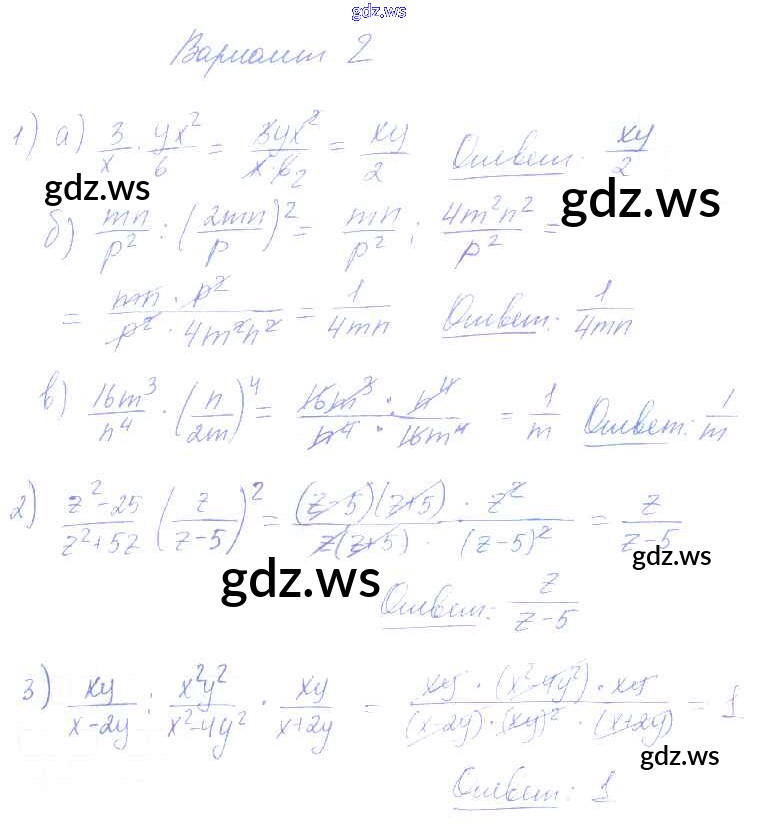 gdz.ws
Вариант 2
1) а) 3/x · yx²/6 = 3yx²/x·6₂ = xy/2 Ответ: xy/2
gdz.ws gdz.ws
б) mn/p² : (2mn/p)² = mn/p² : 4m²n²/p² =
= mn · p²/p² · 4m²n² = 1/4mn Ответ: 1/4mn
в) 16m³/n⁴ · (n/2m)⁴ = 16m³ · n⁴/n⁴ · 16m⁴ = 1/m Ответ: 1/m
2) z²-25/z²+5z (z/z-5)² = (z-5)(z+5) · z²/z(z+5) · (z-5)² = z/z-5
gdz.ws gdz.ws
Ответ: z/z-5
3) xy/x-2y : x²y²/x²-4y² · xy/x+2y = xy · (x²-4y²) · xy/(x-2y) · (xy)² · (x+2y) = 1
gdz.ws
Ответ: 1